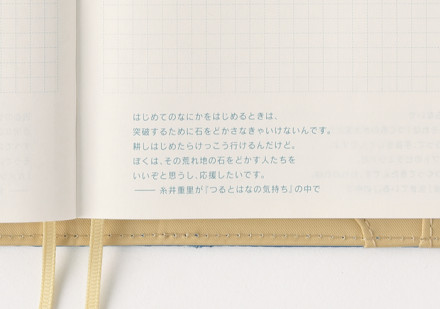 はじめてのなにかをはじめるときは、
突破するために石をどかさなきゃいけないんです。
耕しはじめたらけっこう行けるんだけど。
ぼくは、その荒れ地の石をどかす人たちを
いいぞと思うし、応援したいです。
―― 糸井重里が『つるとはなの気持ち』の中で